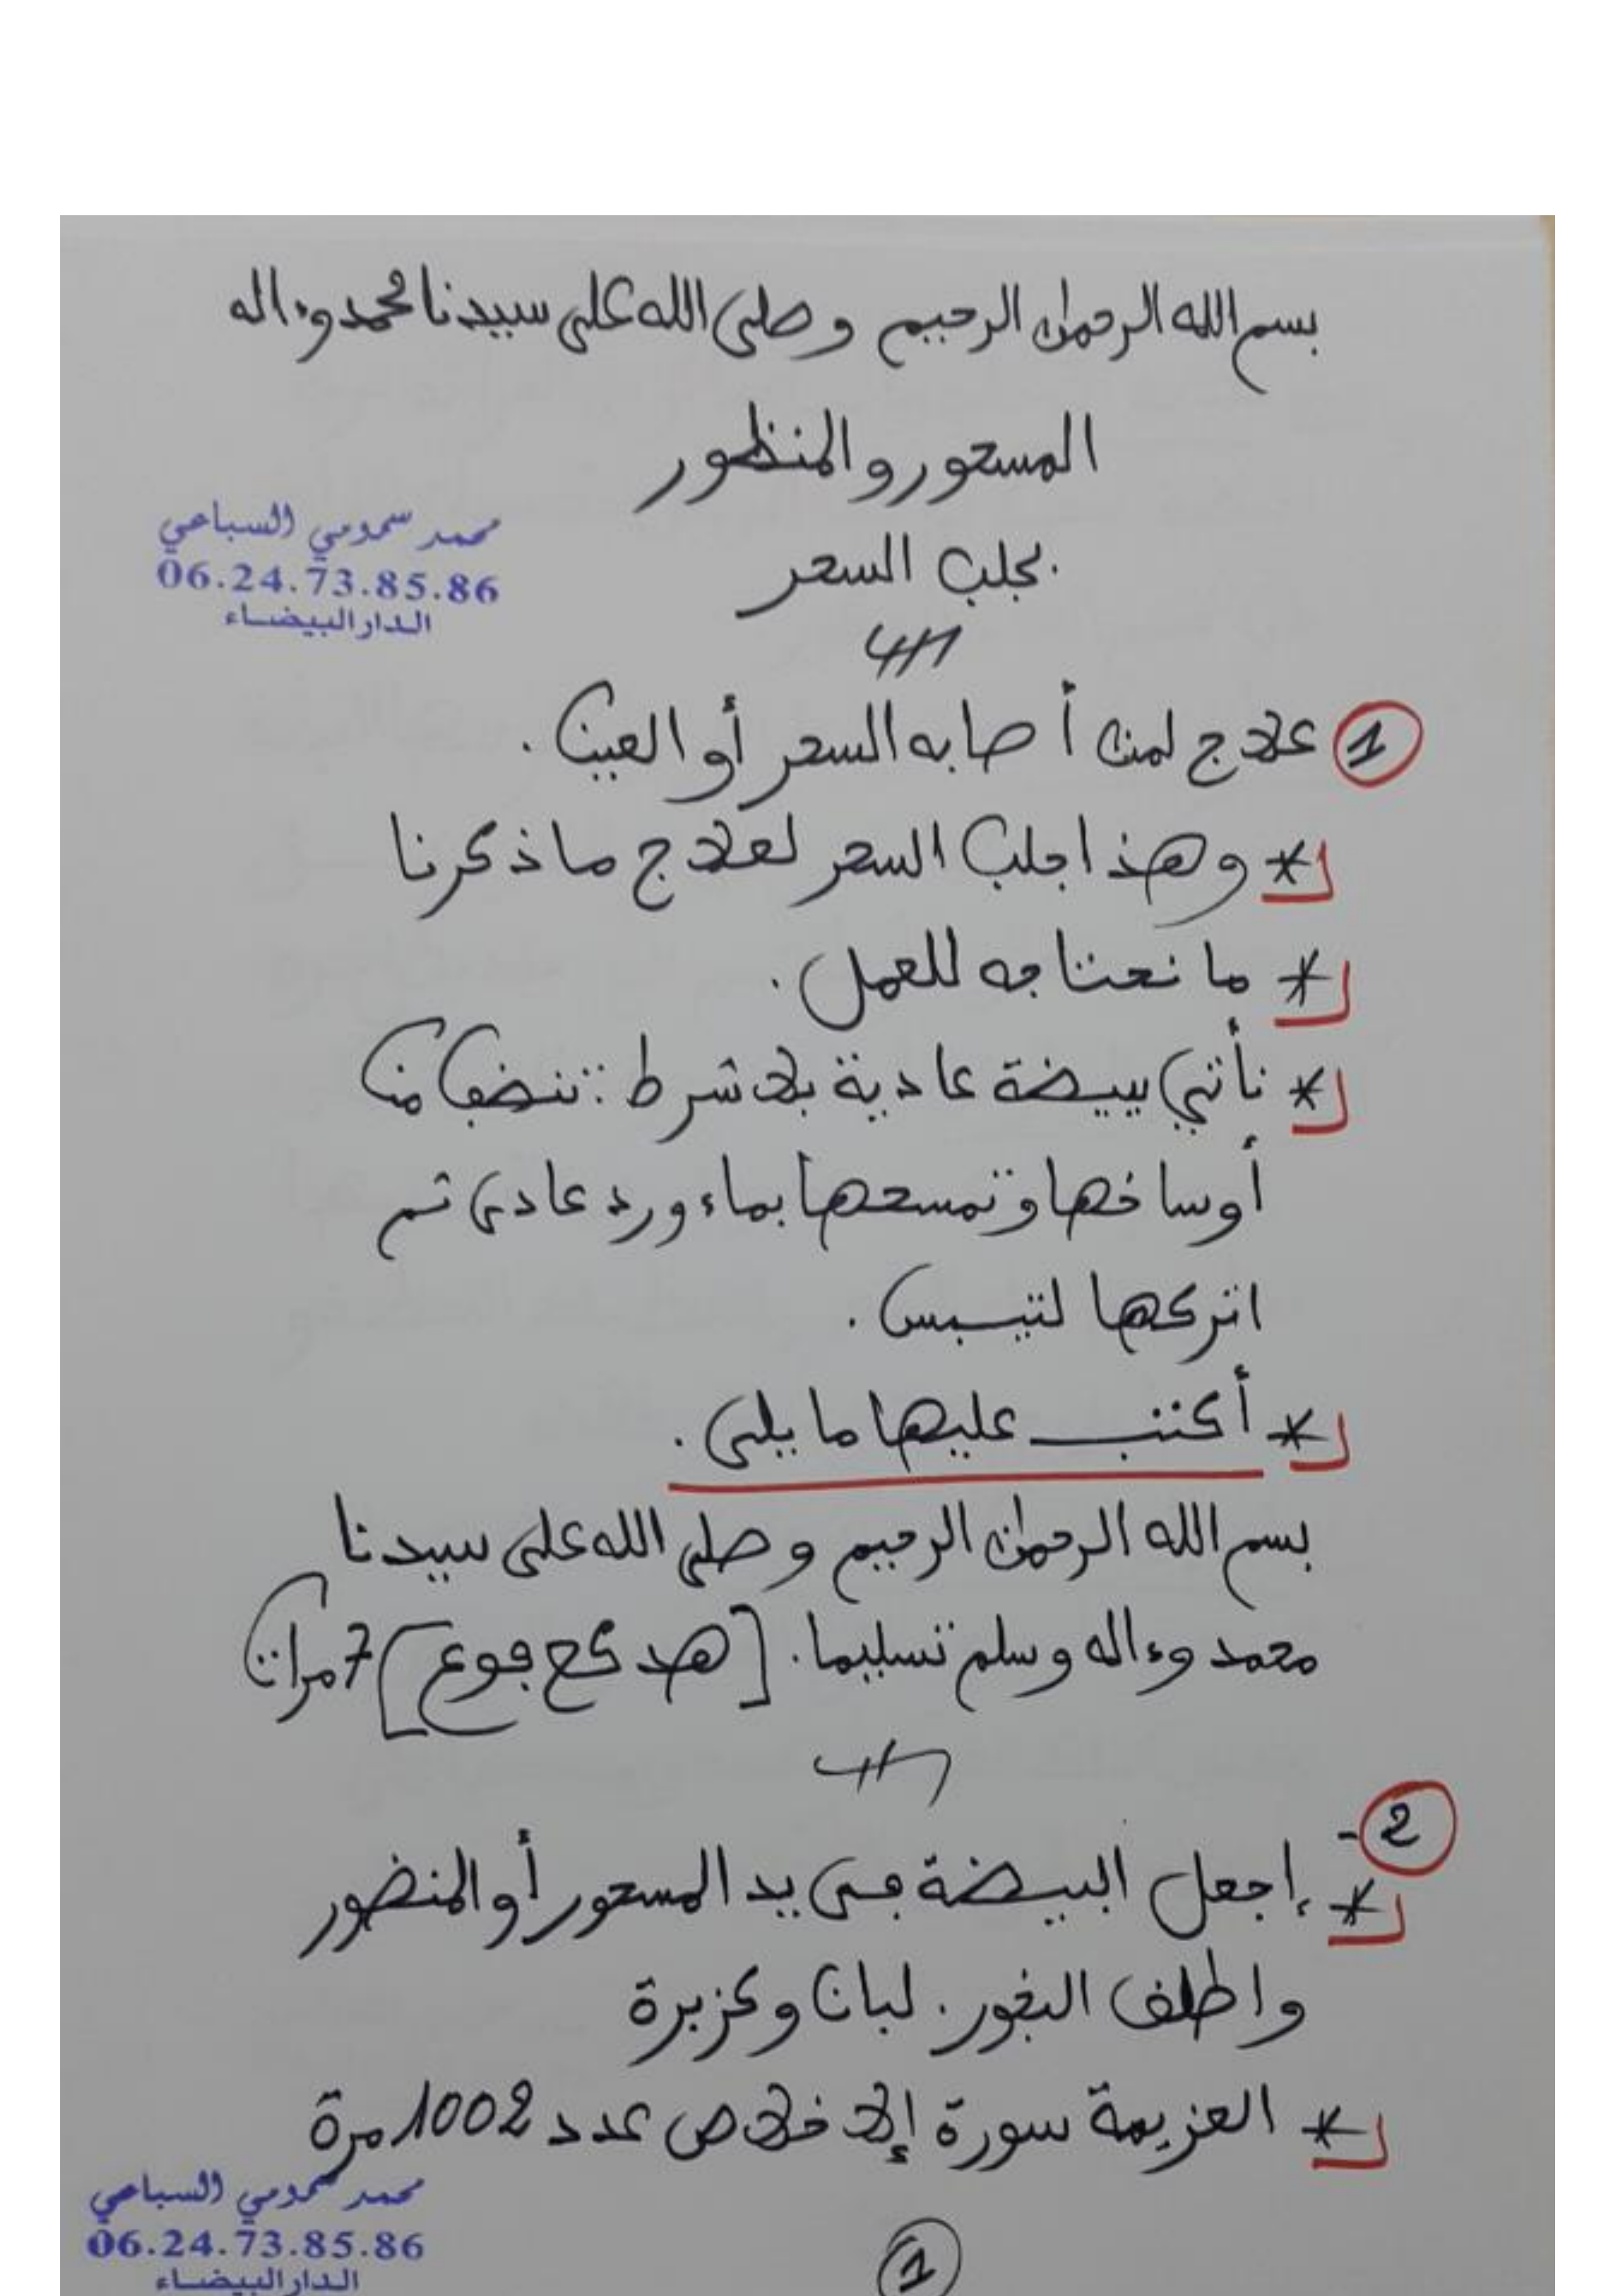 بسم الله الرحمان الرحيم وصلى الله على سيدنا محمد وءاله
المسحور والمنظور
بجلب السحر
محمد سمومي السباعي
06.24.73.85.86
الدار البيضاء
1 علاج لمن أصابه السحر أو العين.
* وهذا جلب السحر لعلاج ما ذكرنا
* ما نحتاجه للعمل.
* نأتي ببيضة عادية بلا شرط: تنضف من
أوساخها وتمسحها بماء ورد عادى تم
اتركها لتيبس.
* أكتب عليها ما يلى.
بسم الله الرحمان الرحيم وصلى الله على سيدنا
محمد وءاله وسلم تسليما. [هد كع فوع] 7 مرات
2 -
* إجعل البيضة فى يد المسحور أو المنضور
واطلف البخور. لبان وكزبرة
* العزيمة سورة إلا خلاص عدد 1002 مرة
محمد سمومي السباعي
06.24.73.85.86
الدار البيضاء
1